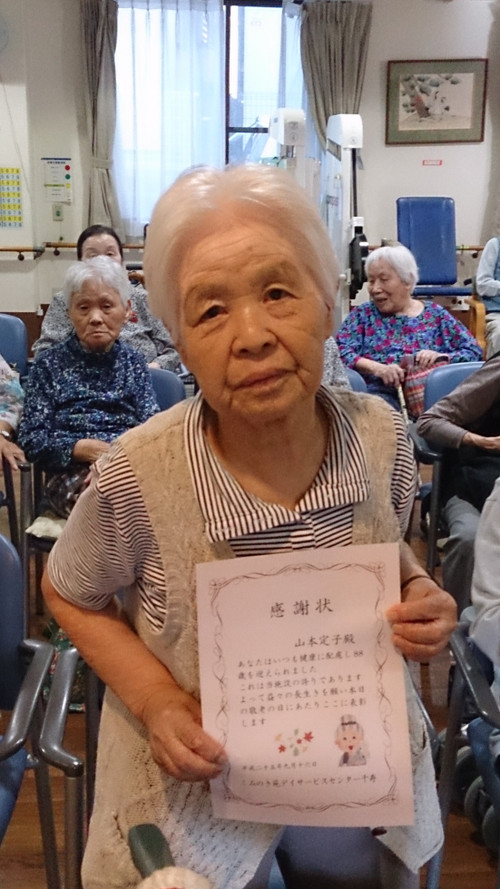 感謝状
山本定子殿
あなたはいつも健康に配慮し88
歳を迎えられました
これは当施設の誇りであります
よって益々の長生きを願い本日
の敬老の日にあたりここに表彰
します
平成二十五年九月十六日
みのり苑デイサービスセンター千寿